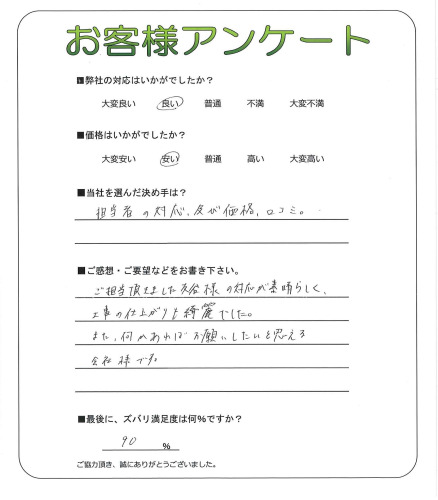 お客様アンケート
■弊社の対応はいかがでしたか？
大変良い 良い 普通 不満 大変不満
■価格はいかがでしたか？
大変安い 安い 普通 高い 大変高い
■当社を選んだ決め手は？
担当者の対応、及び価格、口コミ。
■ご感想・ご要望などをお書き下さい。
ご担当頂きました 様の対応が素晴らしく、
工事の仕上がりも綺麗でした。
また、何かあればお願いしたいと思える
会社様です。
■最後に、ズバリ満足度は何％ですか？
90 ％
ご協力頂き、誠にありがとうございました。